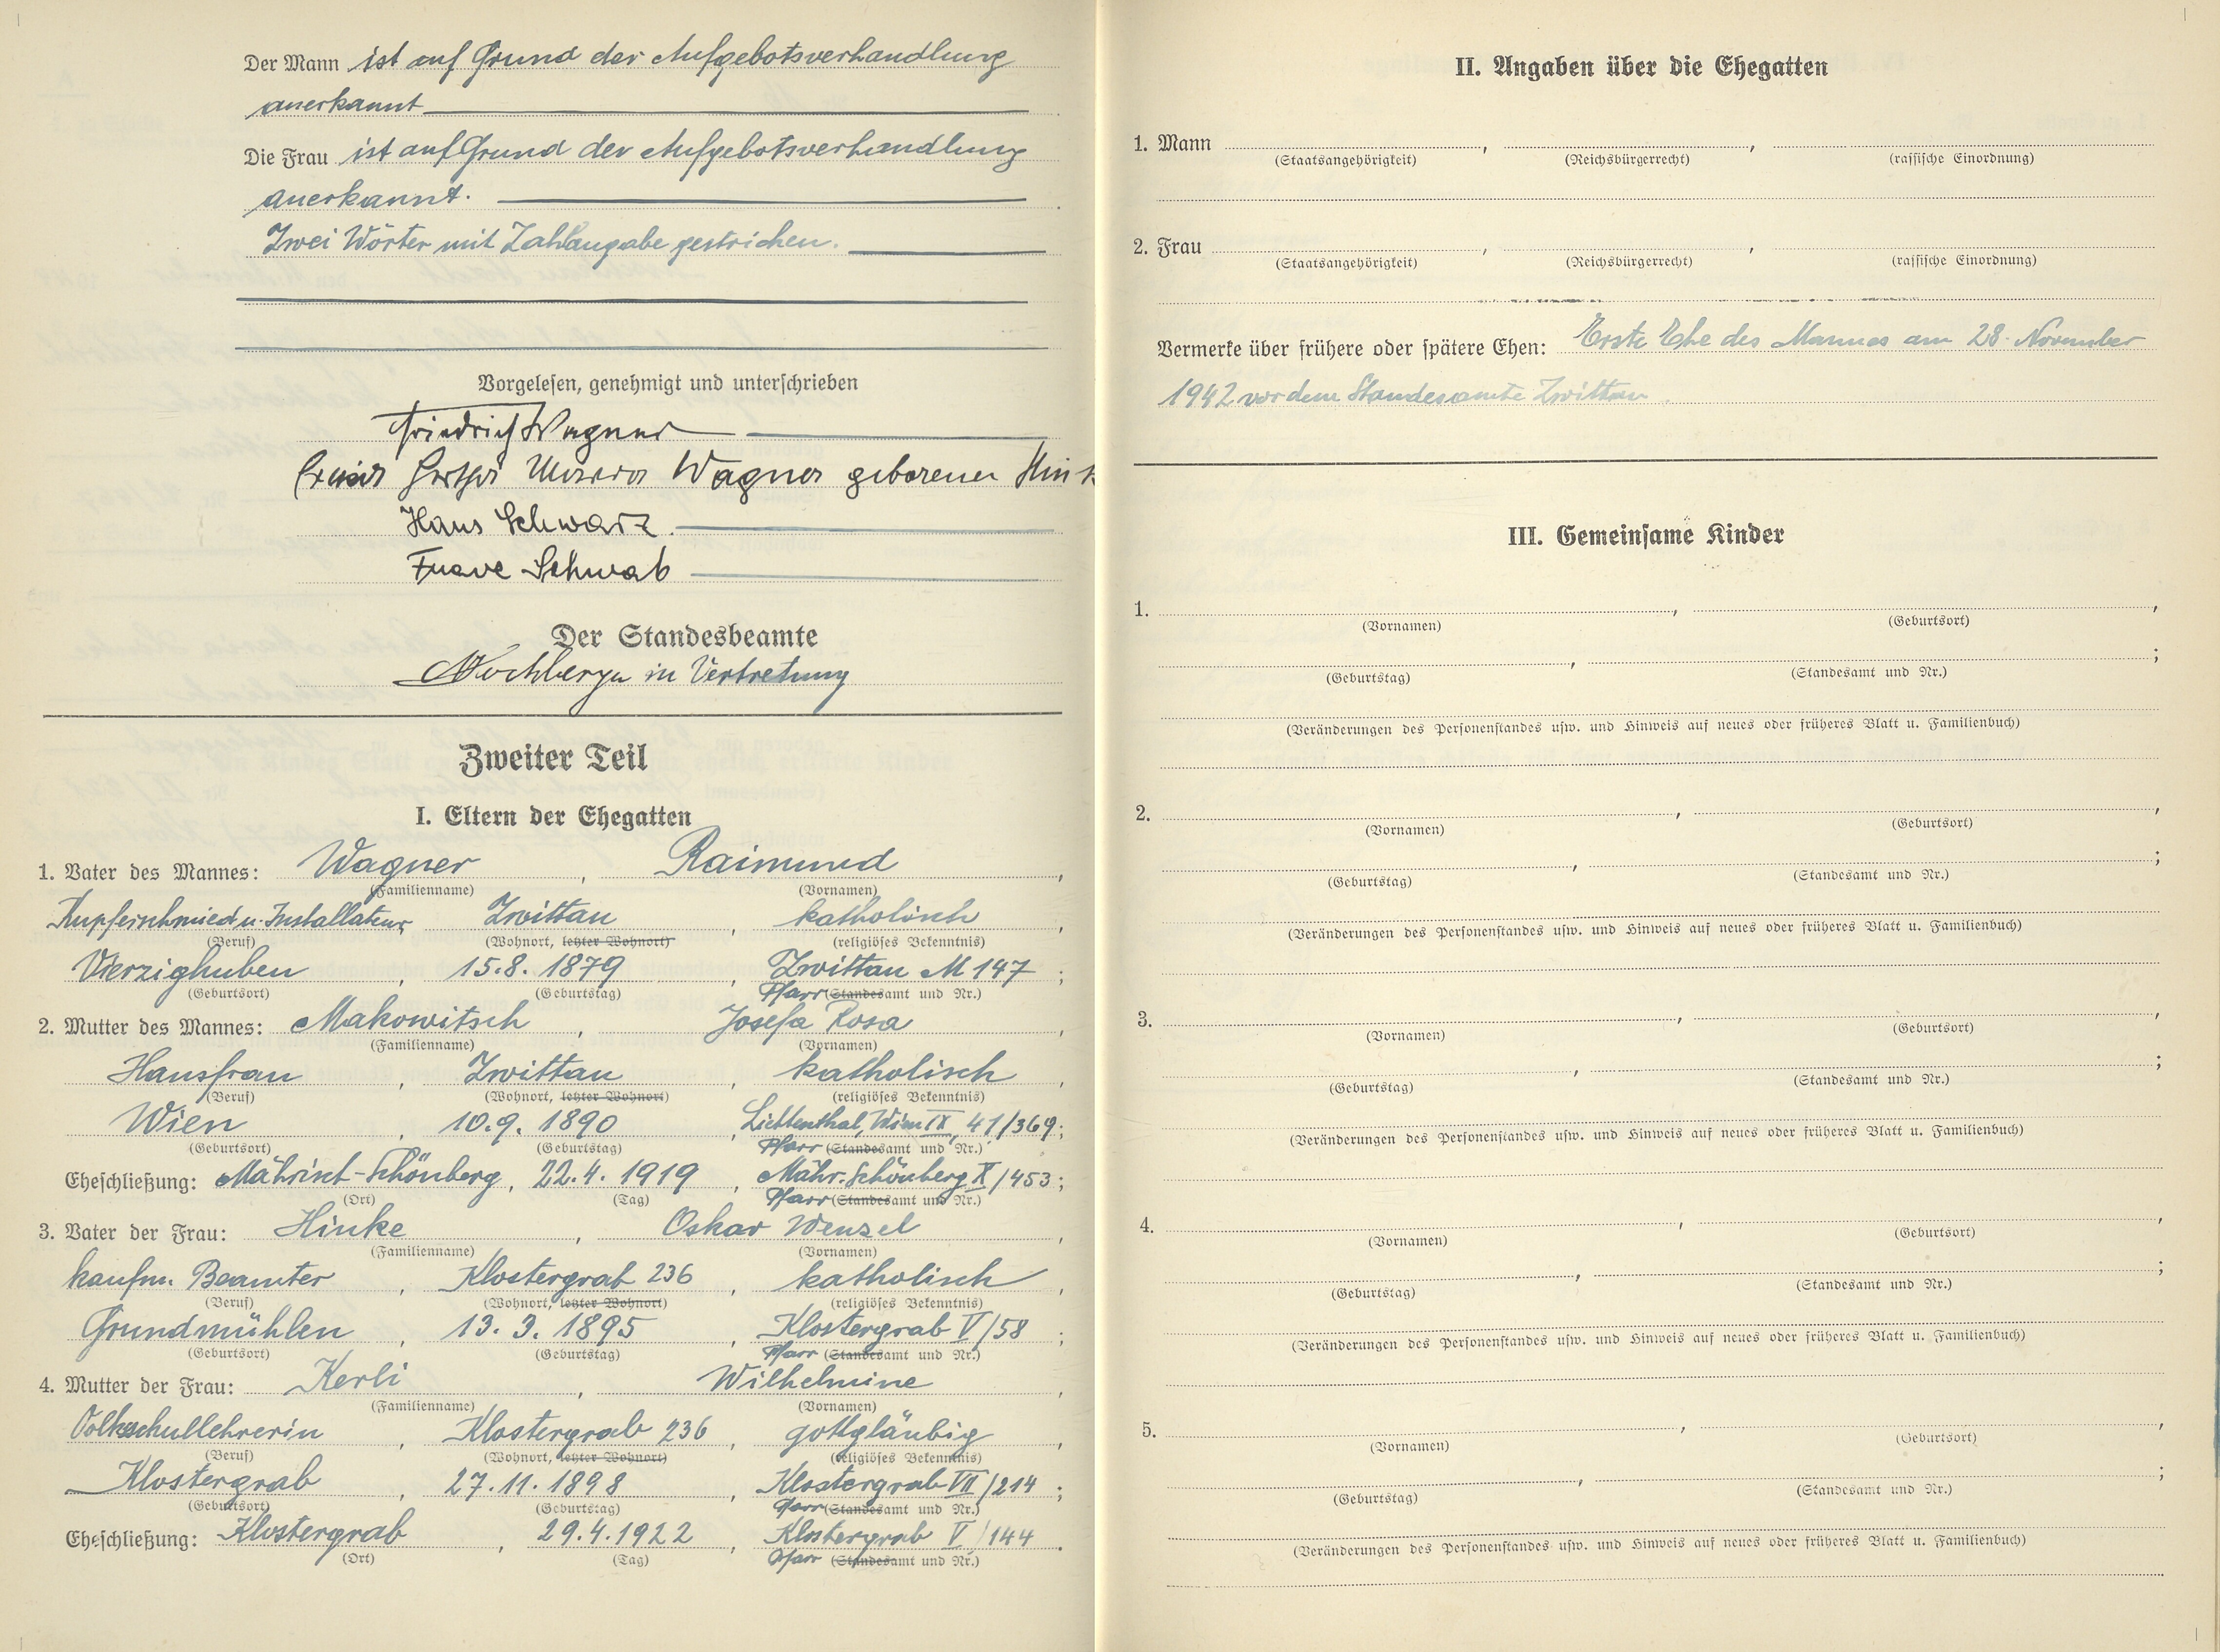 Der Mann ist auf Grund der Aufgebotsverhandlung
anerkannt
Die Frau ist auf Grund der Aufgebotsverhandlung
anerkannt.
Zwei Wörter mit Zahlangabe gestrichen.
Vorgelesen, genehmigt und unterschrieben
Friedrich Wagner
Hertha Maria Wagner geborener Hink
Hans Schwarz.
Schwab
Der Standesbeamte
in Vertretung
Zweiter Teil
I. Eltern der Ehegatten
1. Vater des Mannes: Wagner, Raimund,
(Familienname) (Vornamen)
Kupferschmied u. Installateur, Zwittau, katholisch,
(Beruf) (Wohnort, letzter Wohnort) (religiöses Bekenntnis)
Vierzighuben, 15.8.1879, Zwittau M 147;
(Geburtsort) (Geburtstag) Pfarr (Standesamt und Nr.)
2. Mutter des Mannes: Makowitsch, Josefa Rosa,
(Familienname) (Vornamen)
Hausfrau, Zwittau, katholisch,
(Beruf) (Wohnort, letzter Wohnort) (religiöses Bekenntnis)
Wien, 10.9.1890, Liechtenthal, Wien IX, 41/369;
(Geburtsort) (Geburtstag) Pfarr (Standesamt und Nr.)
Eheschließung: Mährisch-Schönberg, 22.4.1919, Mähr. Schönberg X/453;
(Ort) (Tag) Pfarr (Standesamt und Nr.)
3. Vater der Frau: Hinke, Oskar Wenzel,
(Familienname) (Vornamen)
kaufm. Beamter, Klostergrab 236, katholisch,
(Beruf) (Wohnort, letzter Wohnort) (religiöses Bekenntnis)
Grundmühlen, 13.3.1895, Klostergrab V/58;
(Geburtsort) (Geburtstag) Pfarr (Standesamt und Nr.)
4. Mutter der Frau: Kerli, Wilhelmine,
(Familienname) (Vornamen)
Volksschullehrerin, Klostergrab 236, gottgläubig,
(Beruf) (Wohnort, letzter Wohnort) (religiöses Bekenntnis)
Klostergrab, 27.11.1898, Klostergrab VII/214;
(Geburtsort) (Geburtstag) Pfarr (Standesamt und Nr.)
Eheschließung: Klostergrab, 29.4.1922, Klostergrab V/144.
(Ort) (Tag) Pfarr (Standesamt und Nr.)
II. Angaben über die Ehegatten
1. Mann , ,
(Staatsangehörigkeit) (Reichsbürgerrecht) (rassische Einordnung)
2. Frau , ,
(Staatsangehörigkeit) (Reichsbürgerrecht) (rassische Einordnung)
Vermerke über frühere oder spätere Ehen: Erste Ehe des Mannes am 28. November
1942 vor dem Standesamte Zwittau.
III. Gemeinsame Kinder
1. , ,
(Vornamen) (Geburtsort)
, ;
(Geburtstag) (Standesamt und Nr.)
(Veränderungen des Personenstandes usw. und Hinweis auf neues oder früheres Blatt u. Familienbuch)
2. , ,
(Vornamen) (Geburtsort)
, ;
(Geburtstag) (Standesamt und Nr.)
(Veränderungen des Personenstandes usw. und Hinweis auf neues oder früheres Blatt u. Familienbuch)
3. , ,
(Vornamen) (Geburtsort)
, ;
(Geburtstag) (Standesamt und Nr.)
(Veränderungen des Personenstandes usw. und Hinweis auf neues oder früheres Blatt u. Familienbuch)
4. , ,
(Vornamen) (Geburtsort)
, ;
(Geburtstag) (Standesamt und Nr.)
(Veränderungen des Personenstandes usw. und Hinweis auf neues oder früheres Blatt u. Familienbuch)
5. , ,
(Vornamen) (Geburtsort)
, ;
(Geburtstag) (Standesamt und Nr.)
(Veränderungen des Personenstandes usw. und Hinweis auf neues oder früheres Blatt u. Familienbuch)